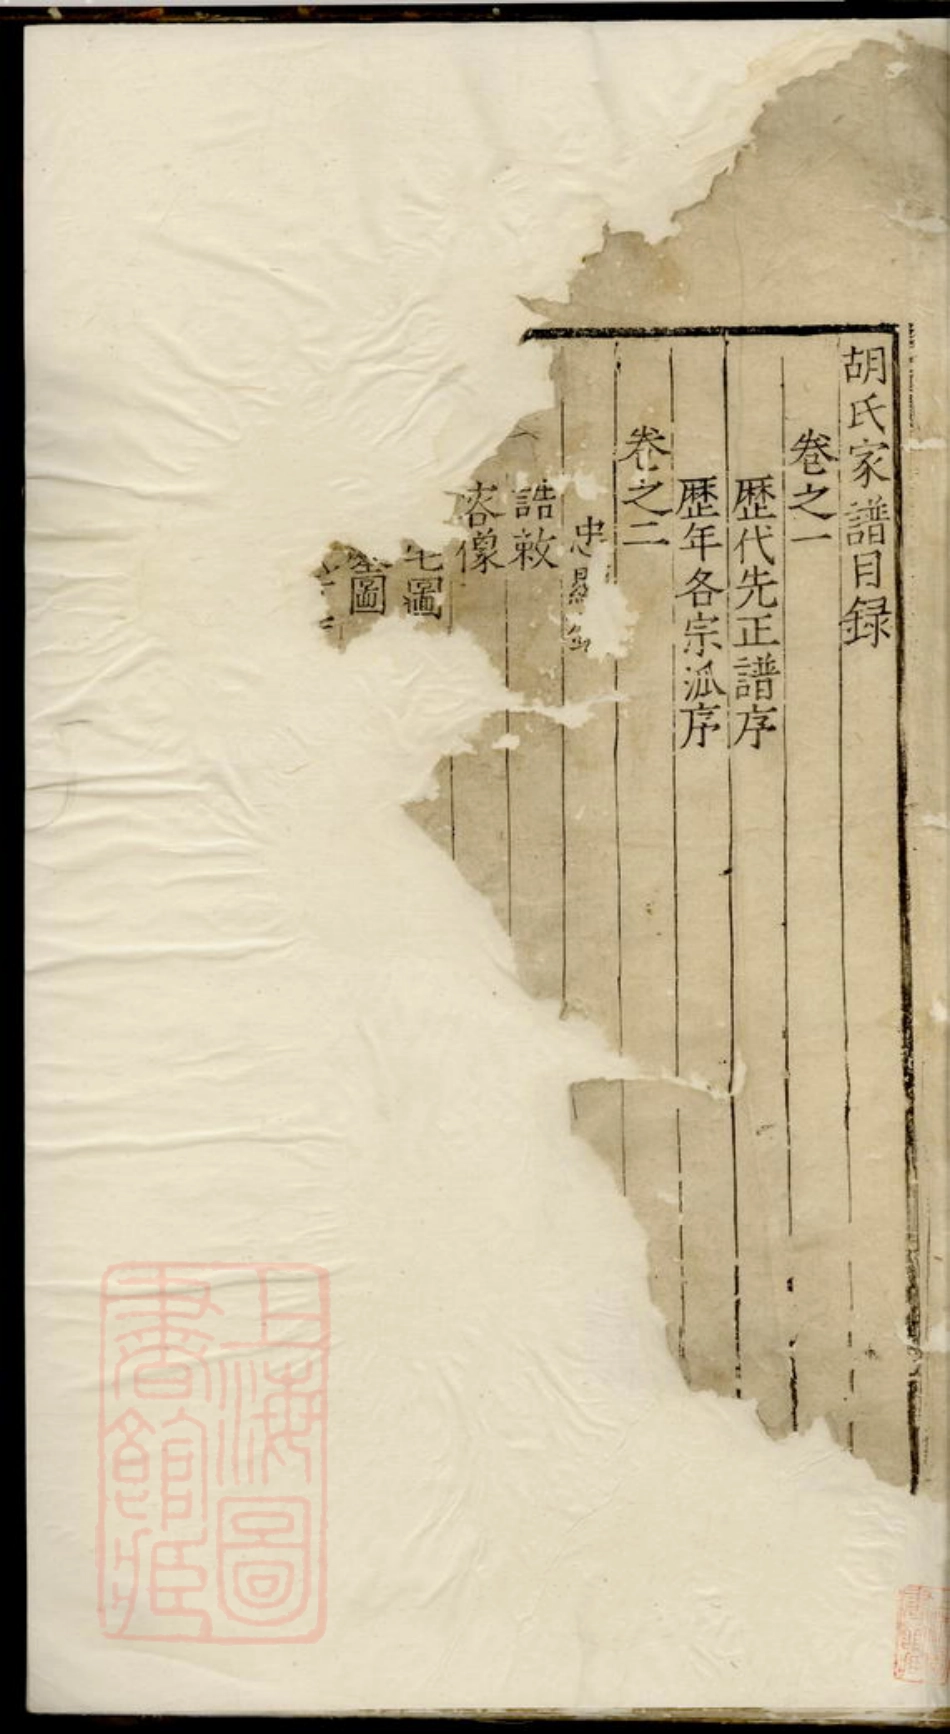 胡氏家譜目録
卷之一
歷代先正譜序
歷年各宗派序
卷之二
忠
誥敕
容像
圖
圖
上海圖書館藏